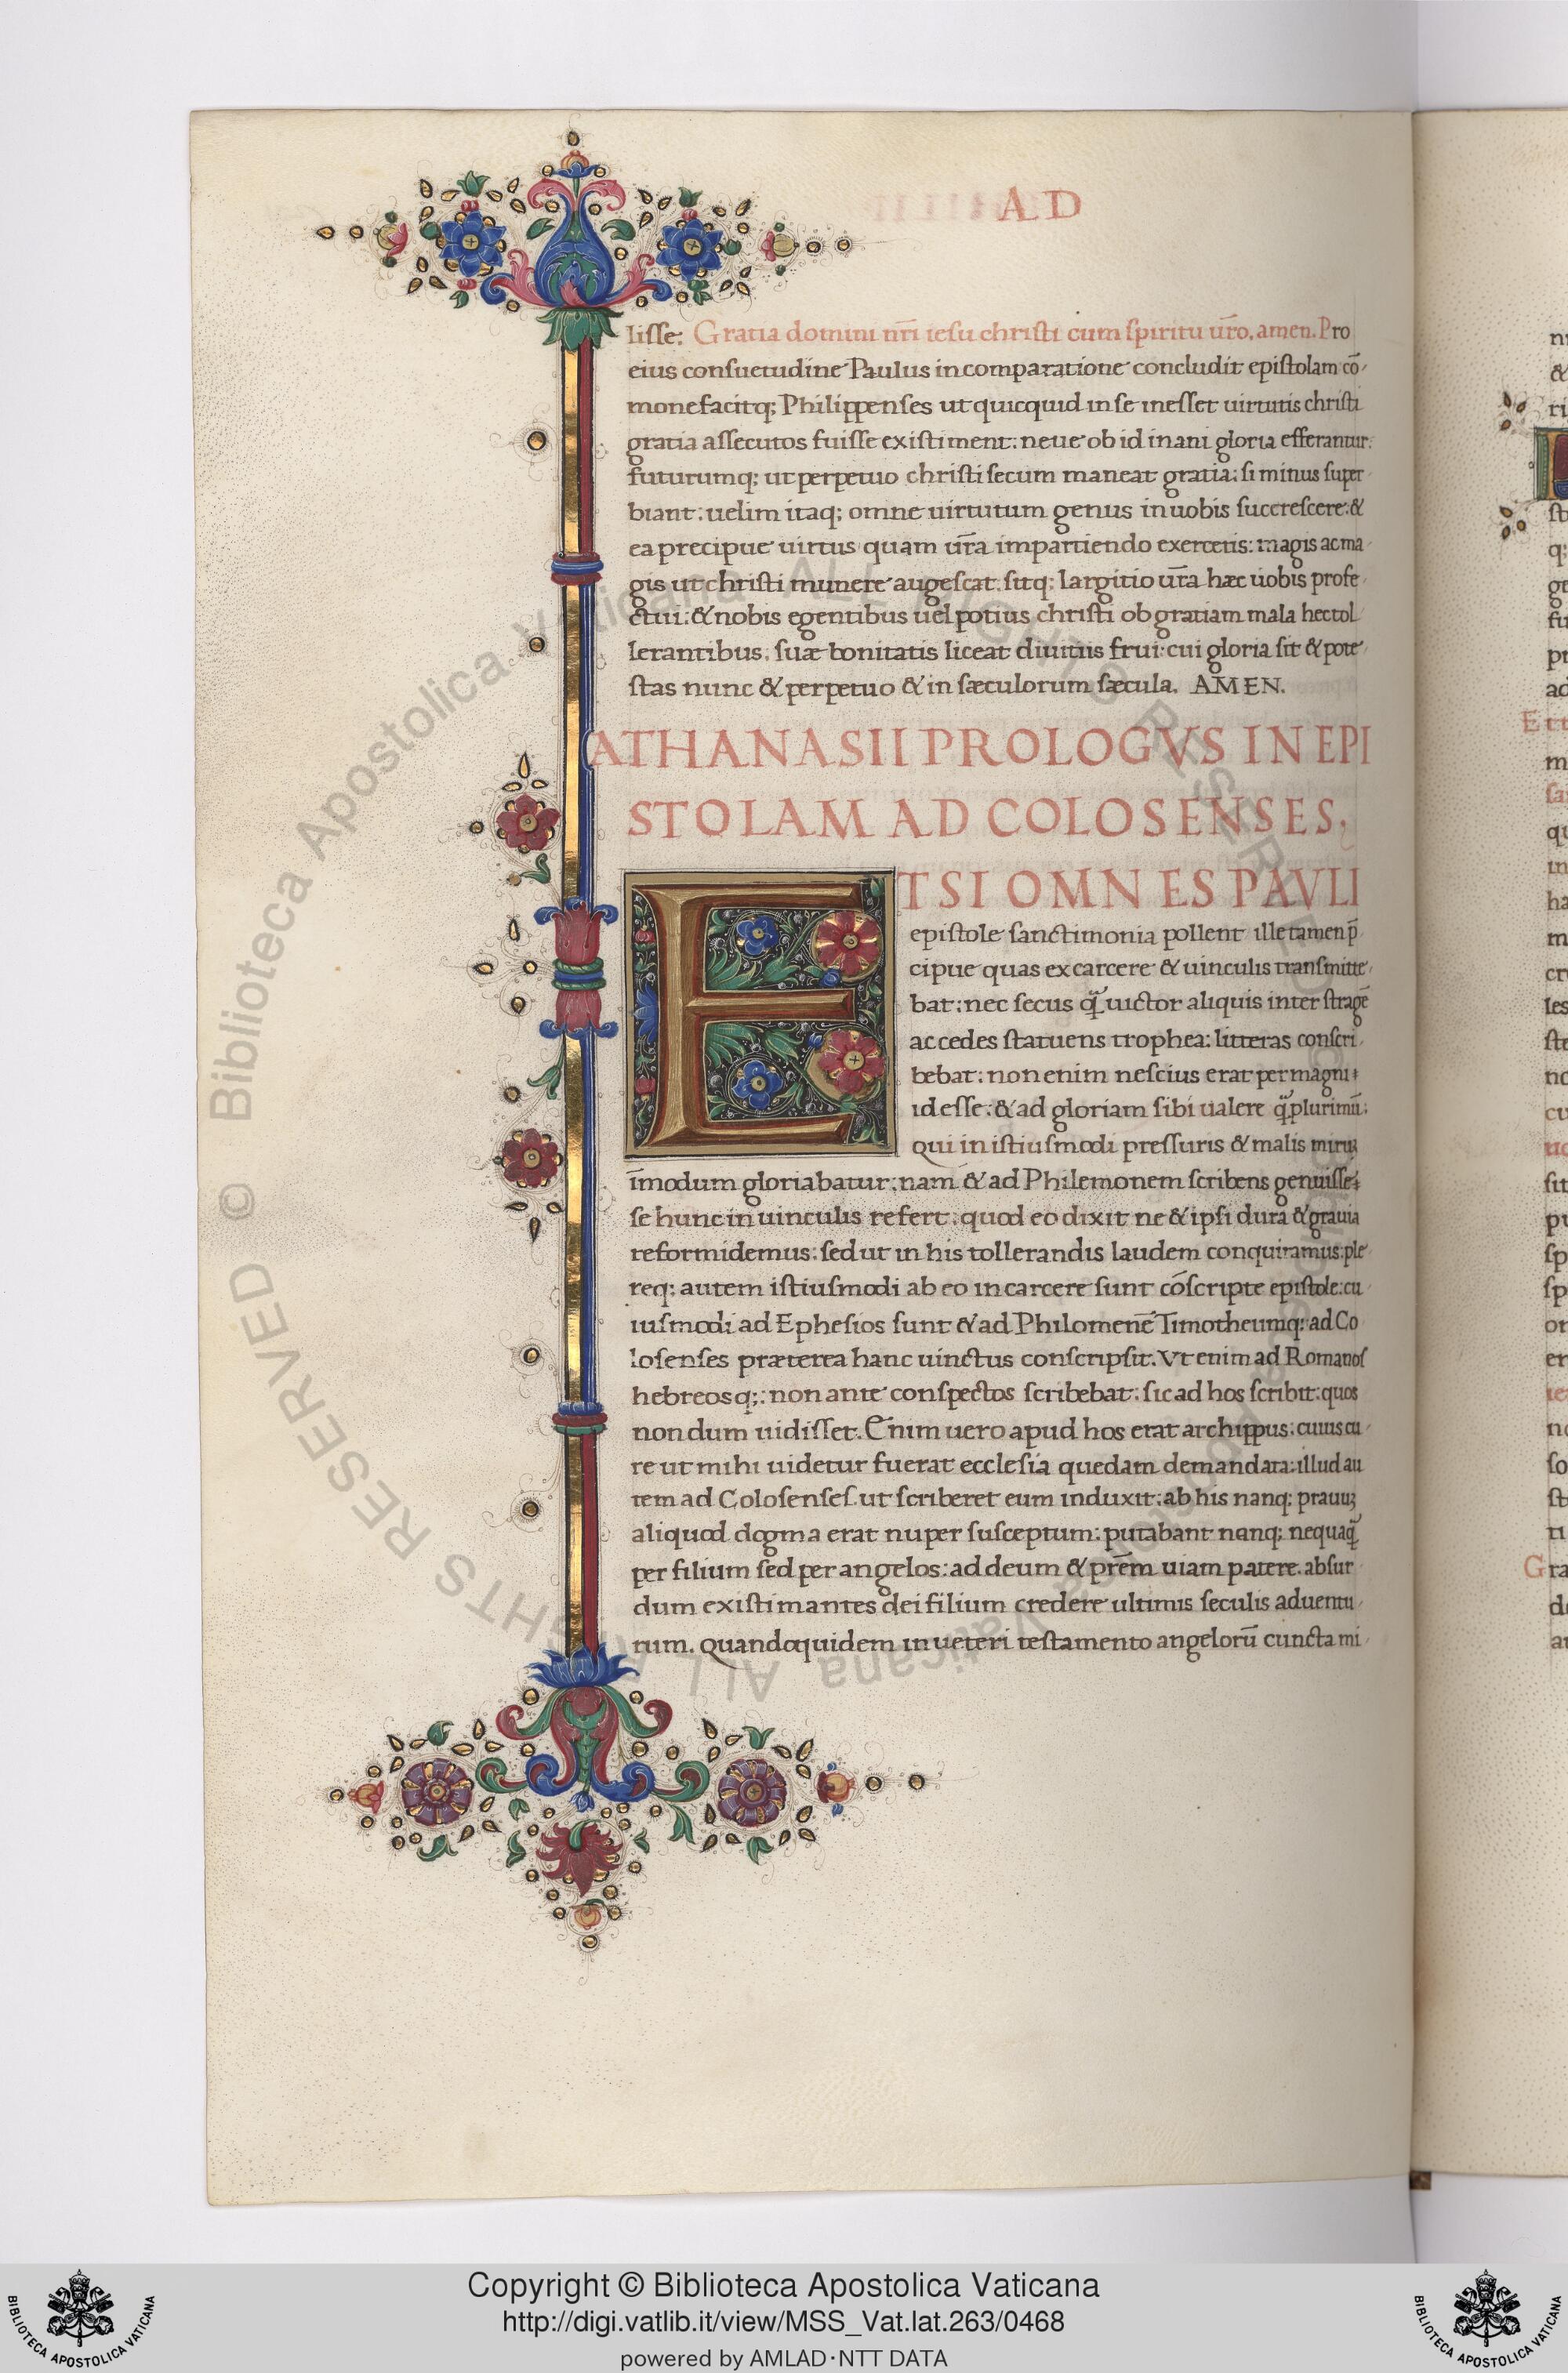 AD
lisse: Gratia domini nr̃i iesu christi cum spiritu ur̃o. amen. Pro
eius consuetudine Paulus in comparatione concludit epistolam cõ
monefacitq; Philippenses ut quicquid in se inesset uirtutis christi
gratia assecutos fuisse existiment: neue ob id inani gloria efferantur.
futurumq; ut perpetuo christi secum maneat gratia: si minus super
biant: uelim itaq; omne uirtutum genus in uobis succrescere: &
ea precipue uirtus quam ur̃a impartiendo exercetis: magis ac ma
gis ut christi munere augescat. sitq; largitio ur̃a hæc uobis profe
ctui: & nobis egentibus uel potius christi ob gratiam mala hec tol
lerantibus. suæ bonitatis liceat diuitiis frui: cui gloria sit & pote
stas nunc & perpetuo & in sæculorum sæcula. AMEN.
ATHANASII PROLOGVS IN EPI
STOLAM AD COLOSENSES.
ET SI OMNES PAVLI
epistole sanctimonia pollent ille tamen p̃
cipue quas ex carcere & uinculis transmitte
bat: nec secus q̃ uictor aliquis inter stragẽ
ac cedes statuens trophea: litteras conscri
bebat: non enim nescius erat per magni
id esse: & ad gloriam sibi ualere q̃ plurimũ:
qui in istiusmodi pressuris & malis miruꝫ
ĩmodum gloriabatur: nam & ad Philemonem scribens genuisse
se hunc in uinculis refert: quod eo dixit ne & ipsi dura & grauia
reformidemus: sed ut in his tollerandis laudem conquiramus: ple
req; autem istiusmodi ab eo in carcere sunt cõscripte epistole: cu
iusmodi ad Ephesios sunt & ad Philomenẽ Timotheumq; ad Co
losenses præterea hanc uinctus conscripsit. Vt enim ad Romanos
hebreosq;: non ante conspectos scribebat: sic ad hos scribit: quos
non dum uidisset. Enim uero apud hos erat archippus: cuius cu
re ut mihi uidetur fuerat ecclesia quedam demandata: illud au
tem ad Colosenses ut scriberet eum induxit: ab his nanq; prauuꝫ
aliquod dogma erat nuper susceptum: putabant nanq; nequaq̃
per filium sed per angelos: ad deum & prẽm uiam patere. absur
dum existimantes dei filium credere ultimis seculis aduentu
rum. Quandoquidem in ueteri testamento angelorũ cuncta mi
Copyright © Biblioteca Apostolica Vaticana
http://digi.vatlib.it/view/MSS_Vat.lat.263/0468
powered by AMLAD·NTT DATA
BIBLIOTECA APOSTOLICA VATICANA
BIBLIOTECA APOSTOLICA VATICANA
© Biblioteca Apostolica Vaticana ALL RIGHTS RESERVED